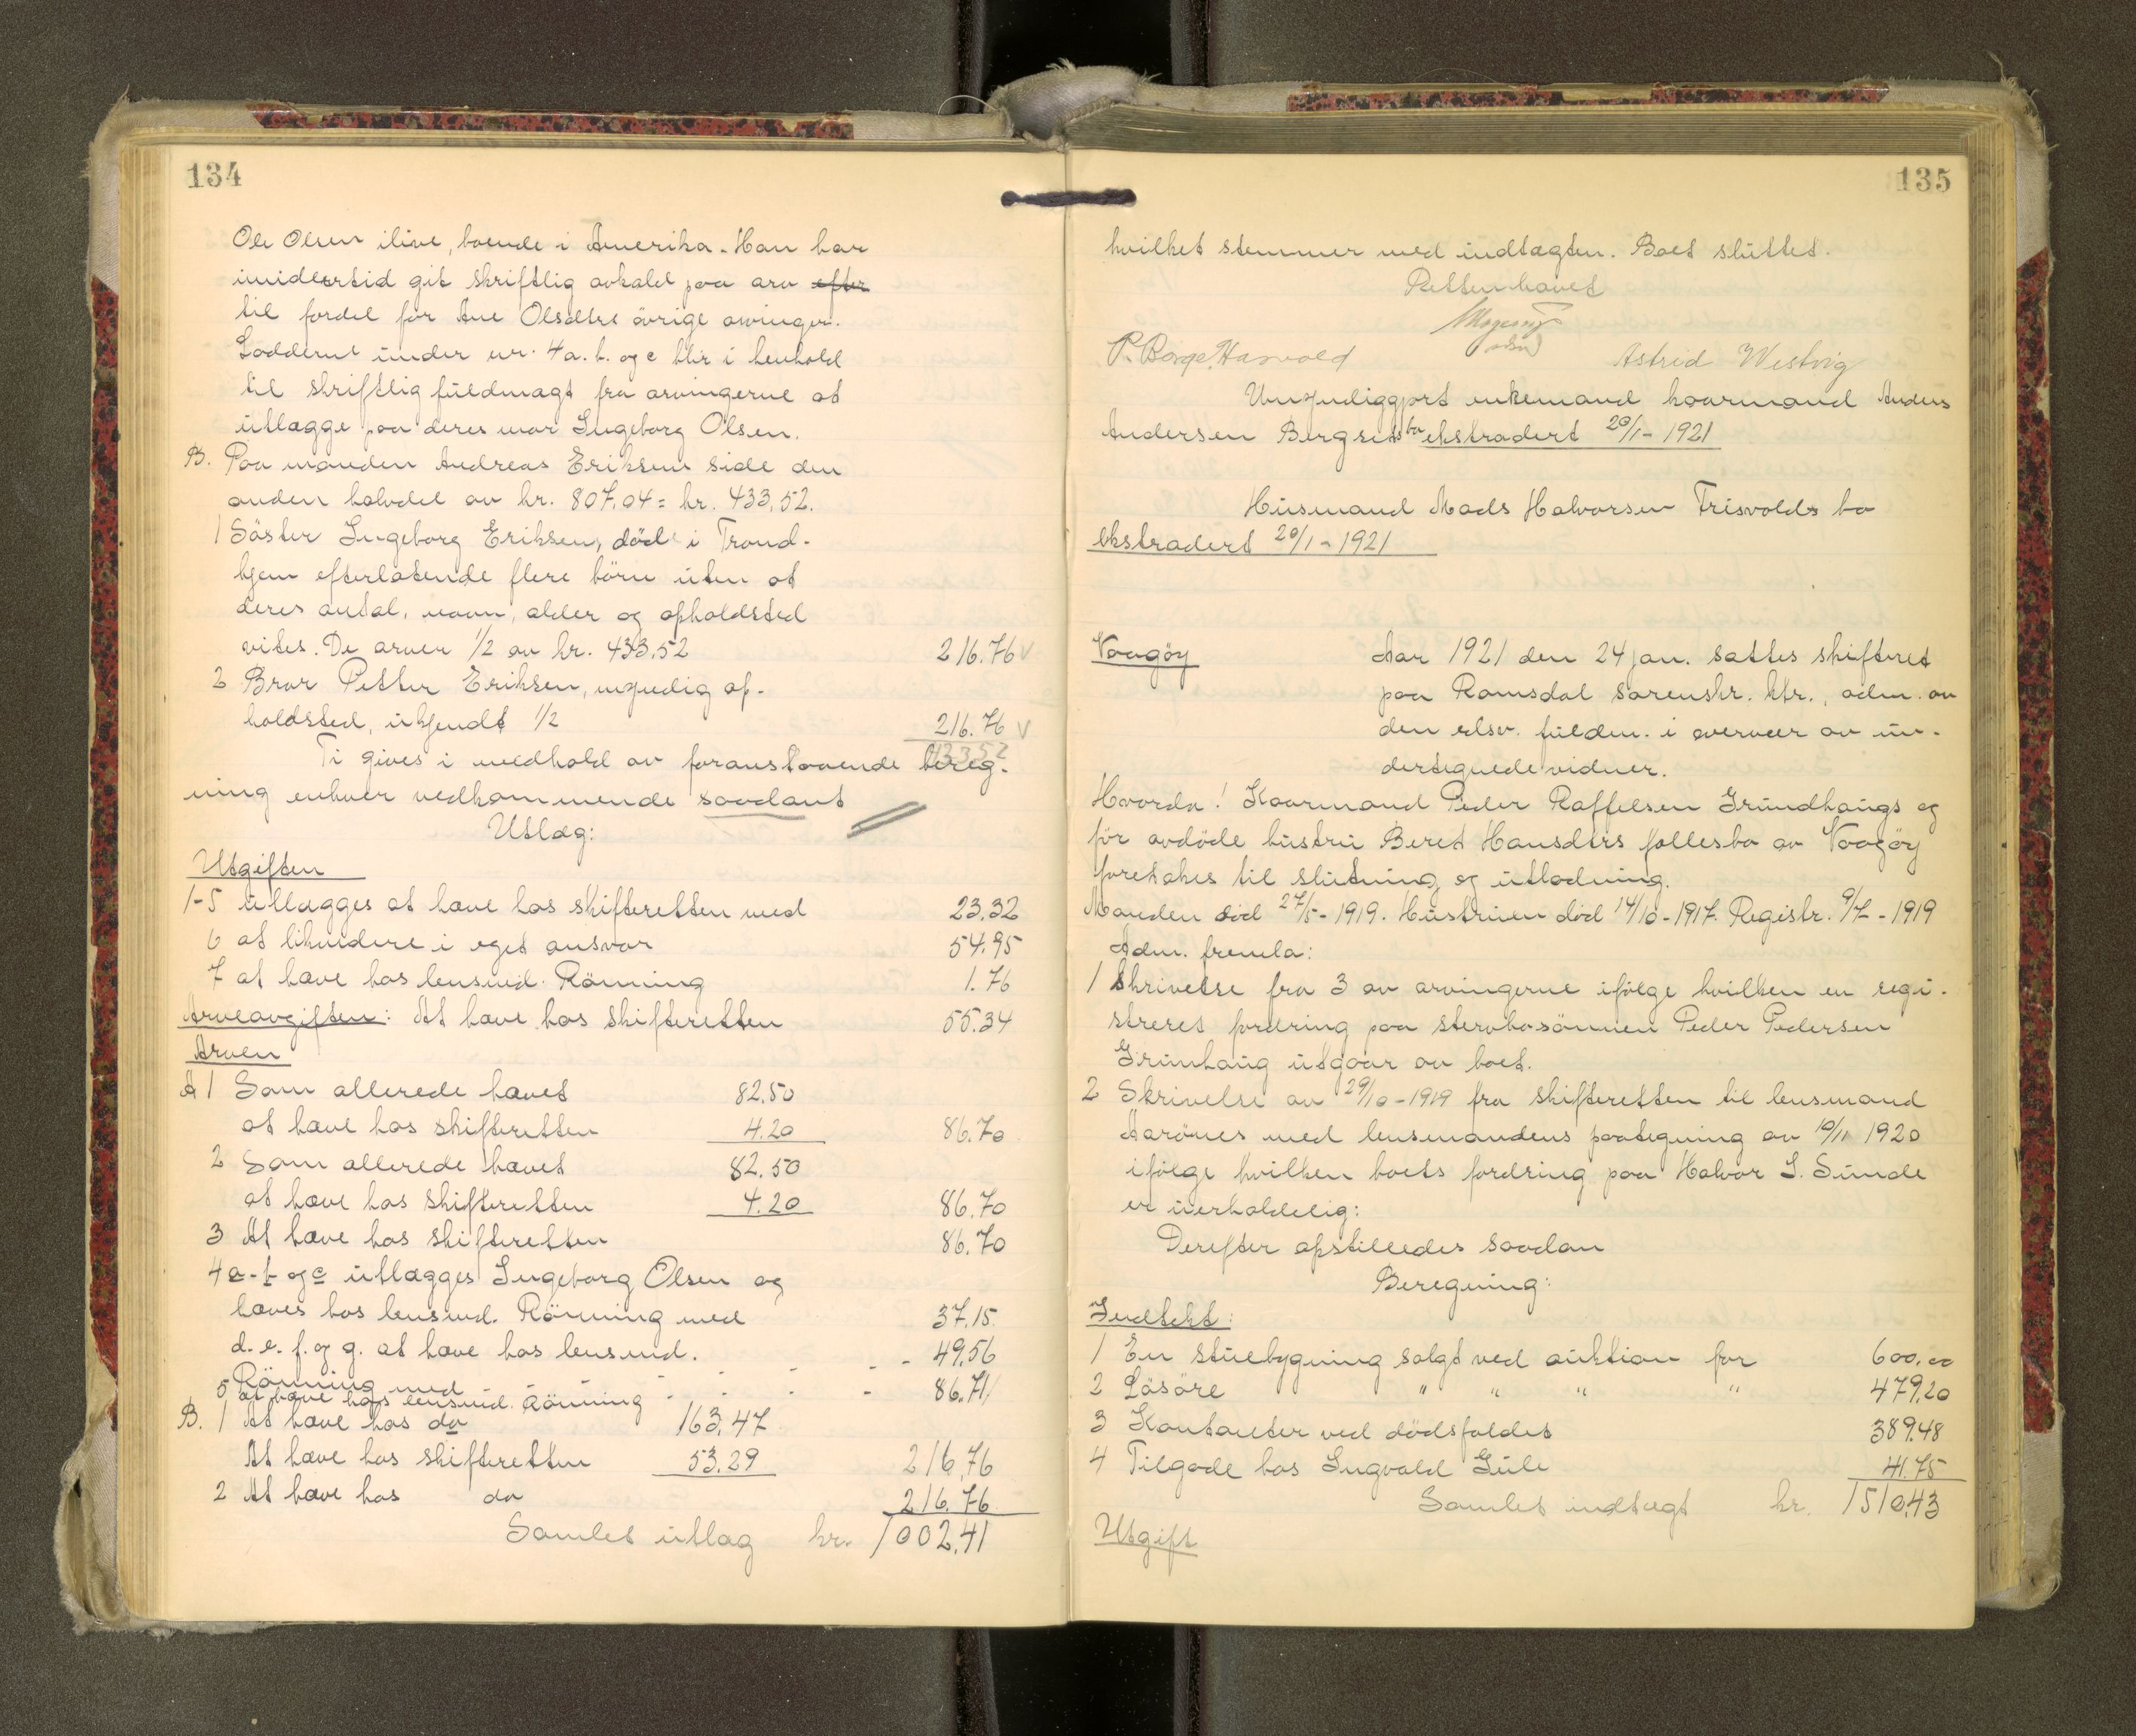 134
Ole Olsen ilive, boende i Amerika. Han har
imidlertid git skriftlig avkald paa arv efter
til fordel for Ane Olsdtrs övrige arvinger.
Lodderne under nr. 4 a. b. og c blir i henhold
til skriftlig fuldmagt fra arvingerne at
utlægge paa deres mor Ingeborg Olsen.
B. Paa manden Andreas Eriksens side den
anden halvdel av kr. 807,04 = kr. 433,52.
1 Söster Ingeborg Eriksen, död i Trond-
hjem efterlatende flere börn uten at
deres antal, navn, alder og opholdsted
vites. De arver 1/2 av kr. 433,52 216.76 V
2 Bror Petter Eriksen, myndig op-
holdsted, ukjendt 1/2 216.76 V
433.52
Ti gives i medhold av foranstaaende bereg-
ning enhver vedkommende saadant
Utlæg:
Utgiften
1-5 utlægges at hæve hos skifteretten med 23.32
6 at likvidere i eget ansvar 54.95
7 at hæve hos lensmd. Rönning 1.76
Arveavgiften: At hæve hos skifteretten 55.34
Arven
A 1 Som allerede hævet 82.50
at hæve hos skifteretten 4.20 86.70
2 Som allerede hævet 82.50
at hæve hos skifteretten 4.20 86.70
3 At hæve hos skifteretten 86.70
4 a-b og c utlægges Ingeborg Olsen og
hæves hos lensmd. Rönning med 37.15
d. e. f. og g. at hæve hos lensmd.
Rönning med - - - - - 49.56
5 at hæve hos lensmd. Rönning - - - - 86.71
B. 1 At hæve hos do 163.47
At hæve hos skifteretten 53.29 216.76
2 At hæve hos do 216.76
Samlet utlæg kr. 1002.41
135
hvilket stemmer med indtægten. Boet sluttet.
Retten hævet
P. Borge Harvold Astrid Westvig
Umyndiggjort enkemand kaarmand Anders
Andersen Bergsets bo ekstradert 20/1 - 1921
Husmand Mads Halvorsen Trisvolds bo
ekstradert 20/1 - 1921
Vaagöy
Aar 1921 den 24 jan. sattes skifteret
paa Romsdal sorenskr. ktr., adm. av
den edsv. fuldm. i overvær av un-
dertegnede vidner.
Hvorda! Kaarmand Peder Raffelsen Grundhaugs og
för avdöde hustru Beret Hansdtrs fællesbo av Vaagöy
foretakes til slutning og utlodning.
Manden död 27/5 - 1919. Hustruen död 14/10 - 1917. Registr. 9/7 - 1919
Adm. fremla:
1 Skrivelse fra 3 av arvingerne ifölge hvilken en regi-
streret fordring paa stervbosönnen Peder Pedersen
Grunhaug utgaar av boet.
2 Skrivelse av 29/10 - 1919 fra skifteretten til lensmand
Aarönes med lensmandens paategning av 10/11 1920
ifölge hvilken boets fordring paa Halvor I. Sunde
er uerholdelig:
Derefter opstilledes saadan
Beregning:
Indtekt:
1 En stuebygning solgt ved auktion for 600,00
2 Lösöre " " " " 479,20
3 Kontanter ved dödsfaldet 389.48
4 Tilgode hos Ingvald Gule 41.75
Samlet indtægt kr. 1510,43
Utgift